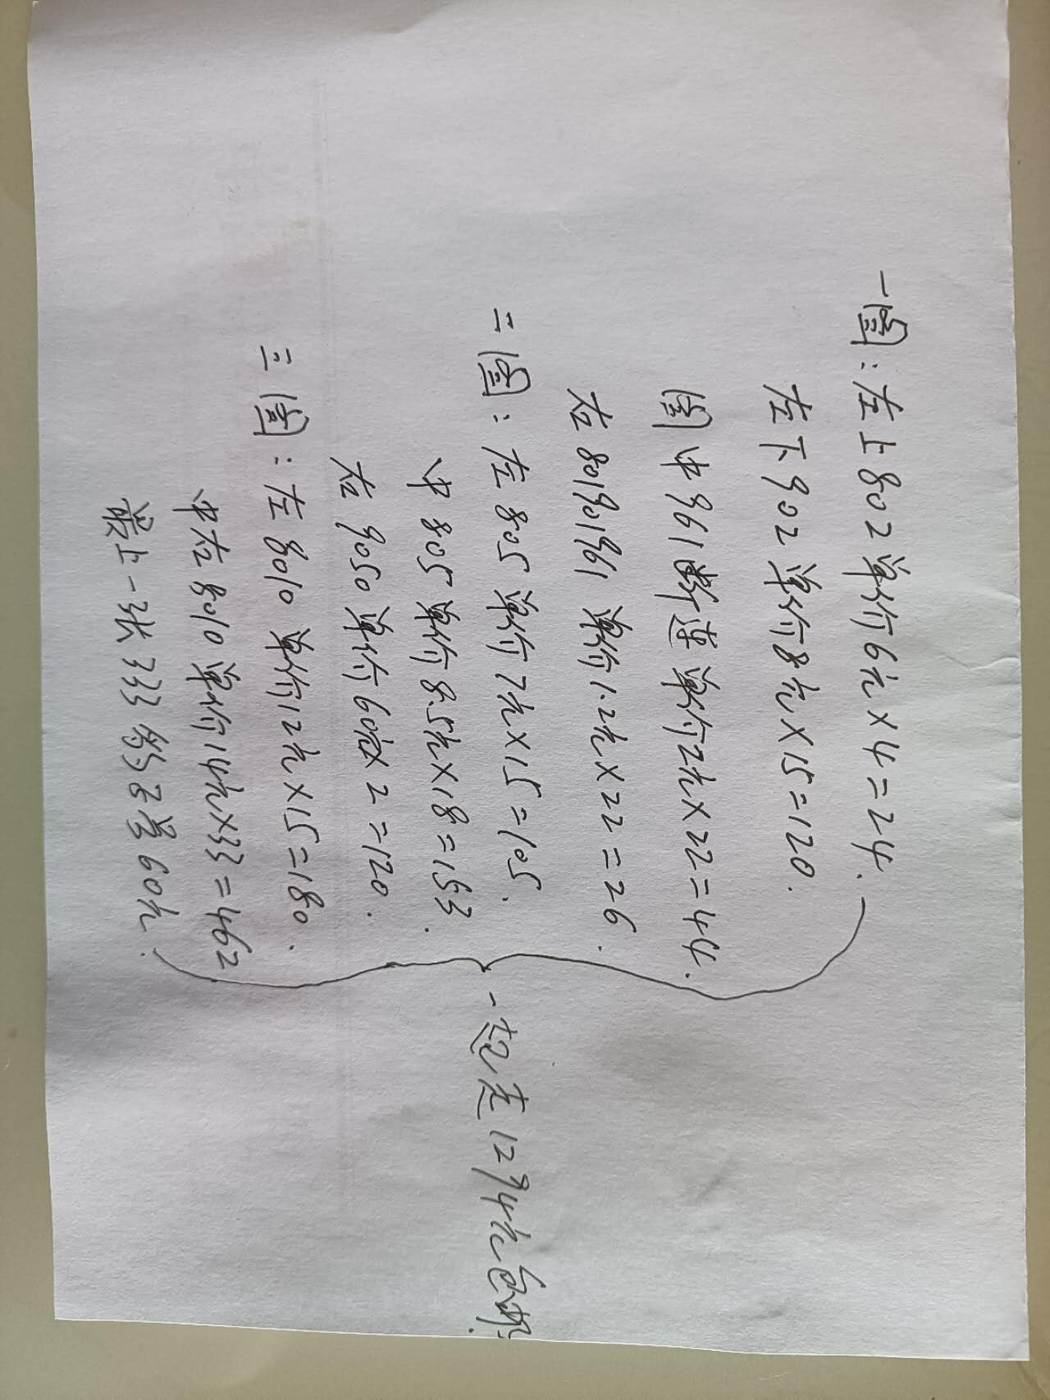 一图：左上802单价6元×4=24.
左下902单价8元×15=120.
图中961断连单价2元×22=44.
右801901961单价1.2元×22=26.
二图：左805单价7元×15=105.
中805单价8.5元×18=153.
右9050单价60元×2=120.
三图：左8010单价12元×15=180.
中右8010单价14元×33=462
最上一张333 60元.
一起走1294元包邮.